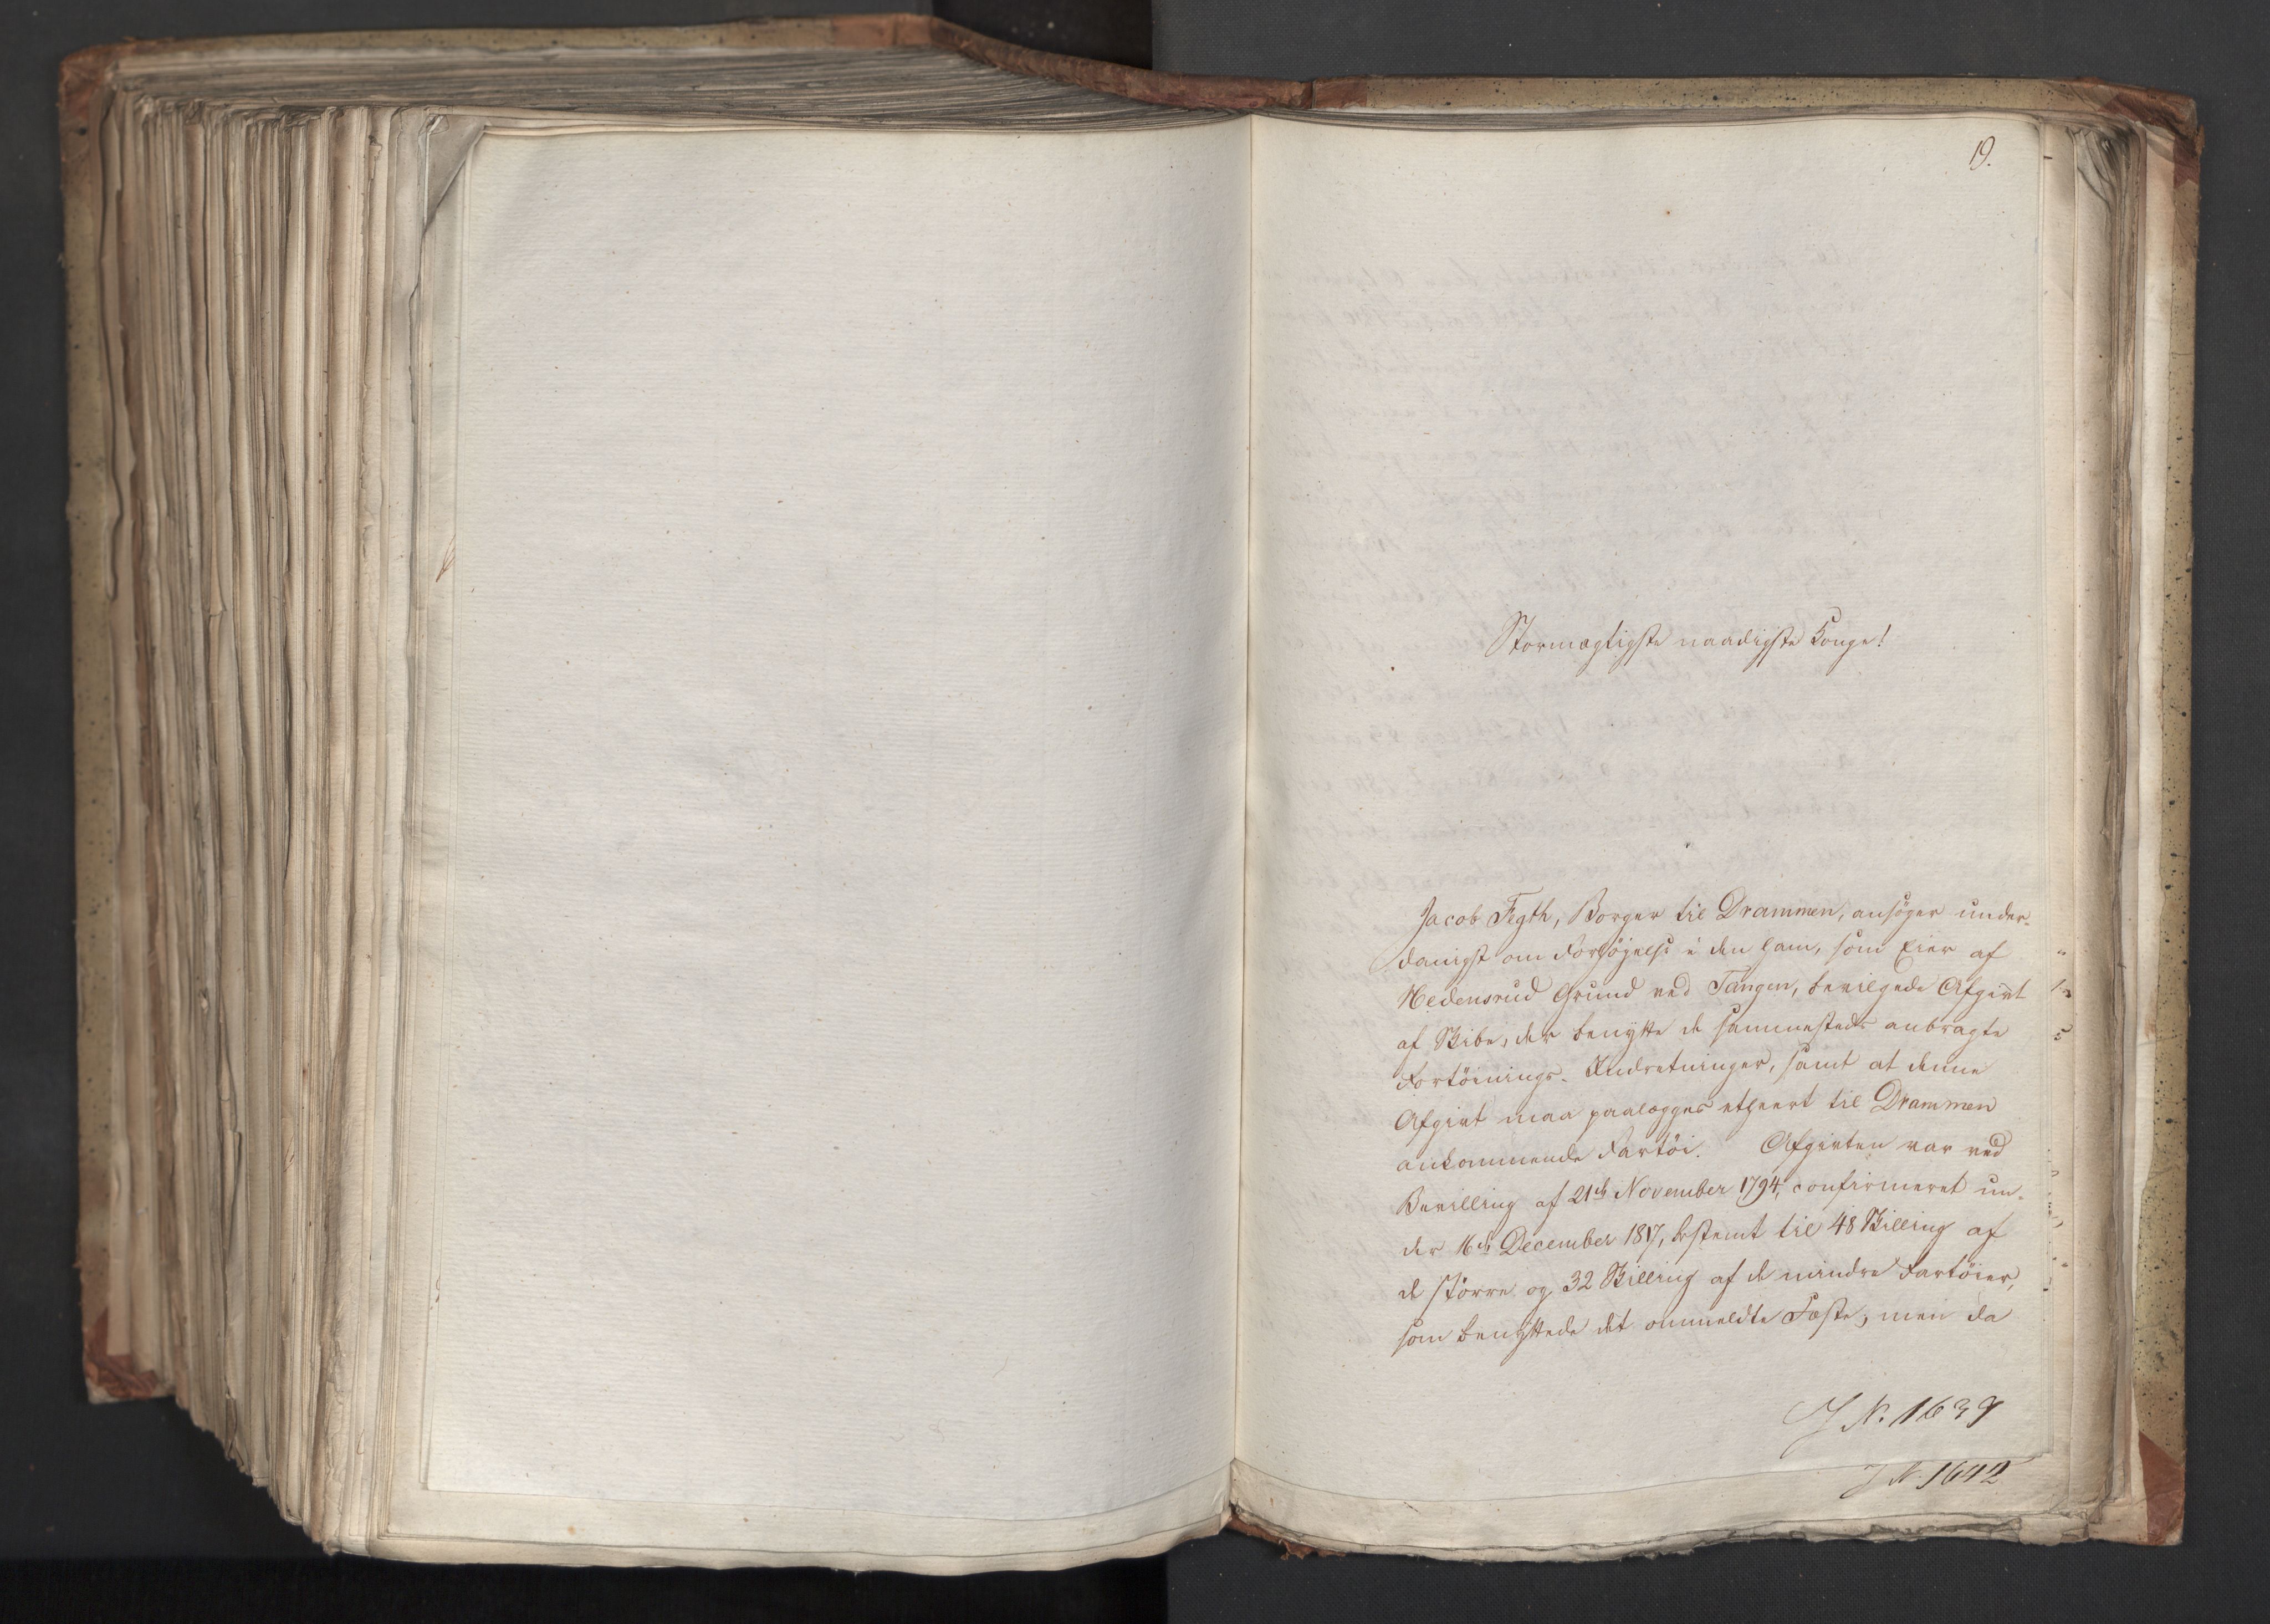 19.
Stormægtigste naadigste Konge!
Jacob Fegth, Borger til Drammen, ansøger under-
danigst om Forhøjelse i den ham, som Eier af
Hedensrud Grund ved Tangen, bevilgede Afgivt
af Skibe, der benytte de sammesteds anbragte
Fortöinings-Indretninger, samt at denne
Afgivt maa paalægges ethvert til Drammen
ankommende Fartöi. Afgivten var ved
Bevilling af 21de November 1794, confirmeret un-
der 16de December 1817, bestemt til 48 Skilling af
de större og 32 Skilling af de mindre Fartöier,
som benyttede det ommeldte Fæste; men da
J N. 1639
J N. 1642